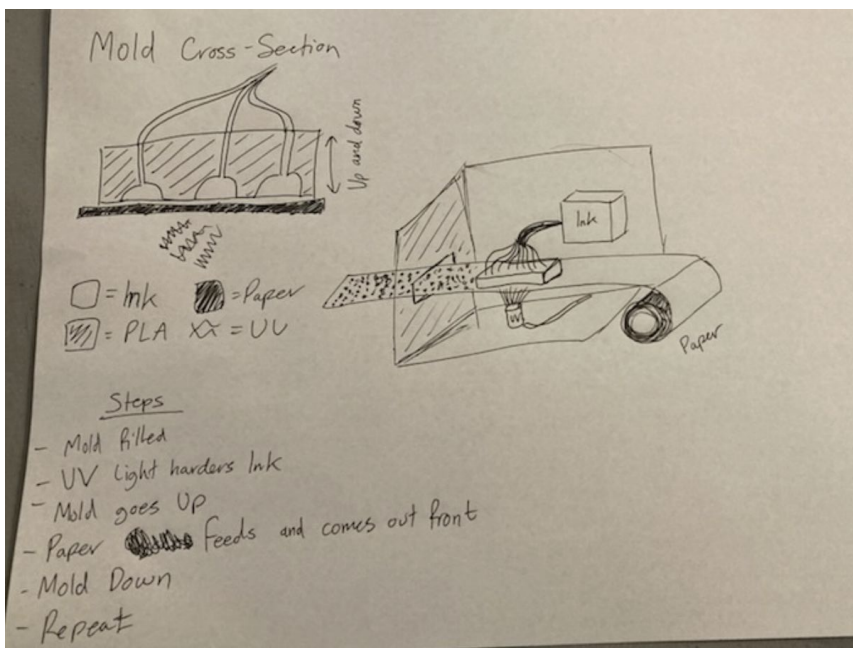 Mold Cross-Section
Up and down
= Ink
= Paper
= PLA
= UV
Ink
UV
Paper
Steps
- Mold filled
- UV light harders Ink
- Mold goes Up
- Paper feeds and comes out front
- Mold Down
- Repeat